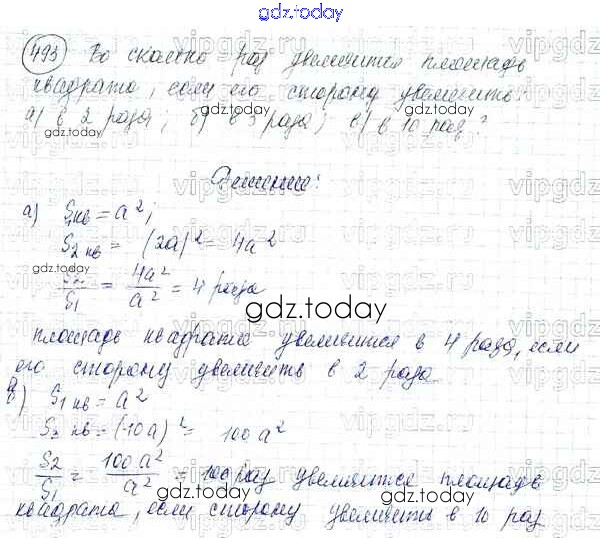 gdz.today
493 Во сколько раз увеличится площадь
квадрата, если его сторону увеличить:
а) в 2 раза; б) в 3 раза; в) в 10 раз?
gdz.today
gdz.today
Решение:
а) S₁кв = a²;
S₂ кв = (2a)² = 4a²
gdz.today
S₂/S₁ = 4a²/a² = 4 раза
gdz.today
площадь квадрата увеличится в 4 раза, если
его сторону увеличить в 2 раза
в) S₁ кв = a²
S₂ кв = (10a)² = 100a²
gdz.today
S₂/S₁ = 100a²/a² = 100 раз увеличится площадь
gdz.today
квадрата, если сторону увеличить в 10 раз
gdz.today